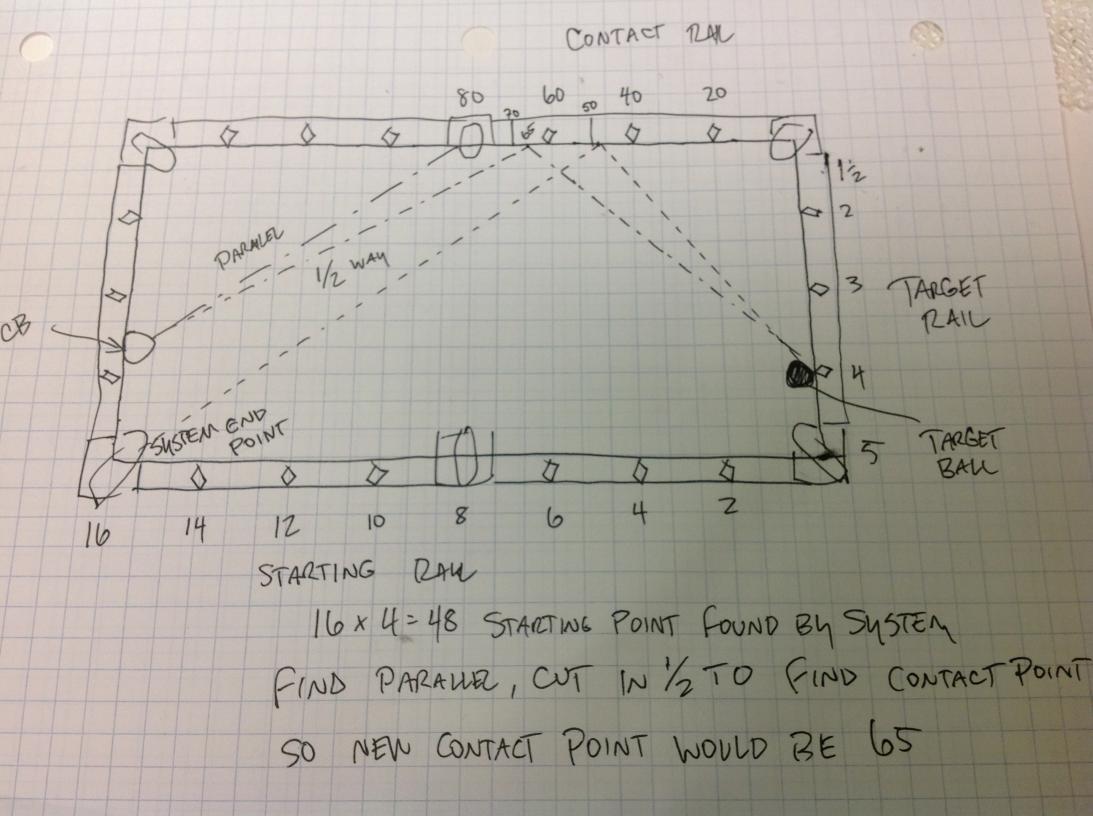 CONTACT RAIL
80 70 65 60 50 40 20
1½
2
PARALLEL
½ WAY
3
TARGET
RAIL
CB
4
SYSTEM END
POINT
5
TARGET
BALL
16 14 12 10 8 6 4 2
STARTING RAIL
16 x 4 = 48 STARTING POINT FOUND BY SYSTEM
FIND PARALLEL, CUT IN ½ TO FIND CONTACT POINT
SO NEW CONTACT POINT WOULD BE 65